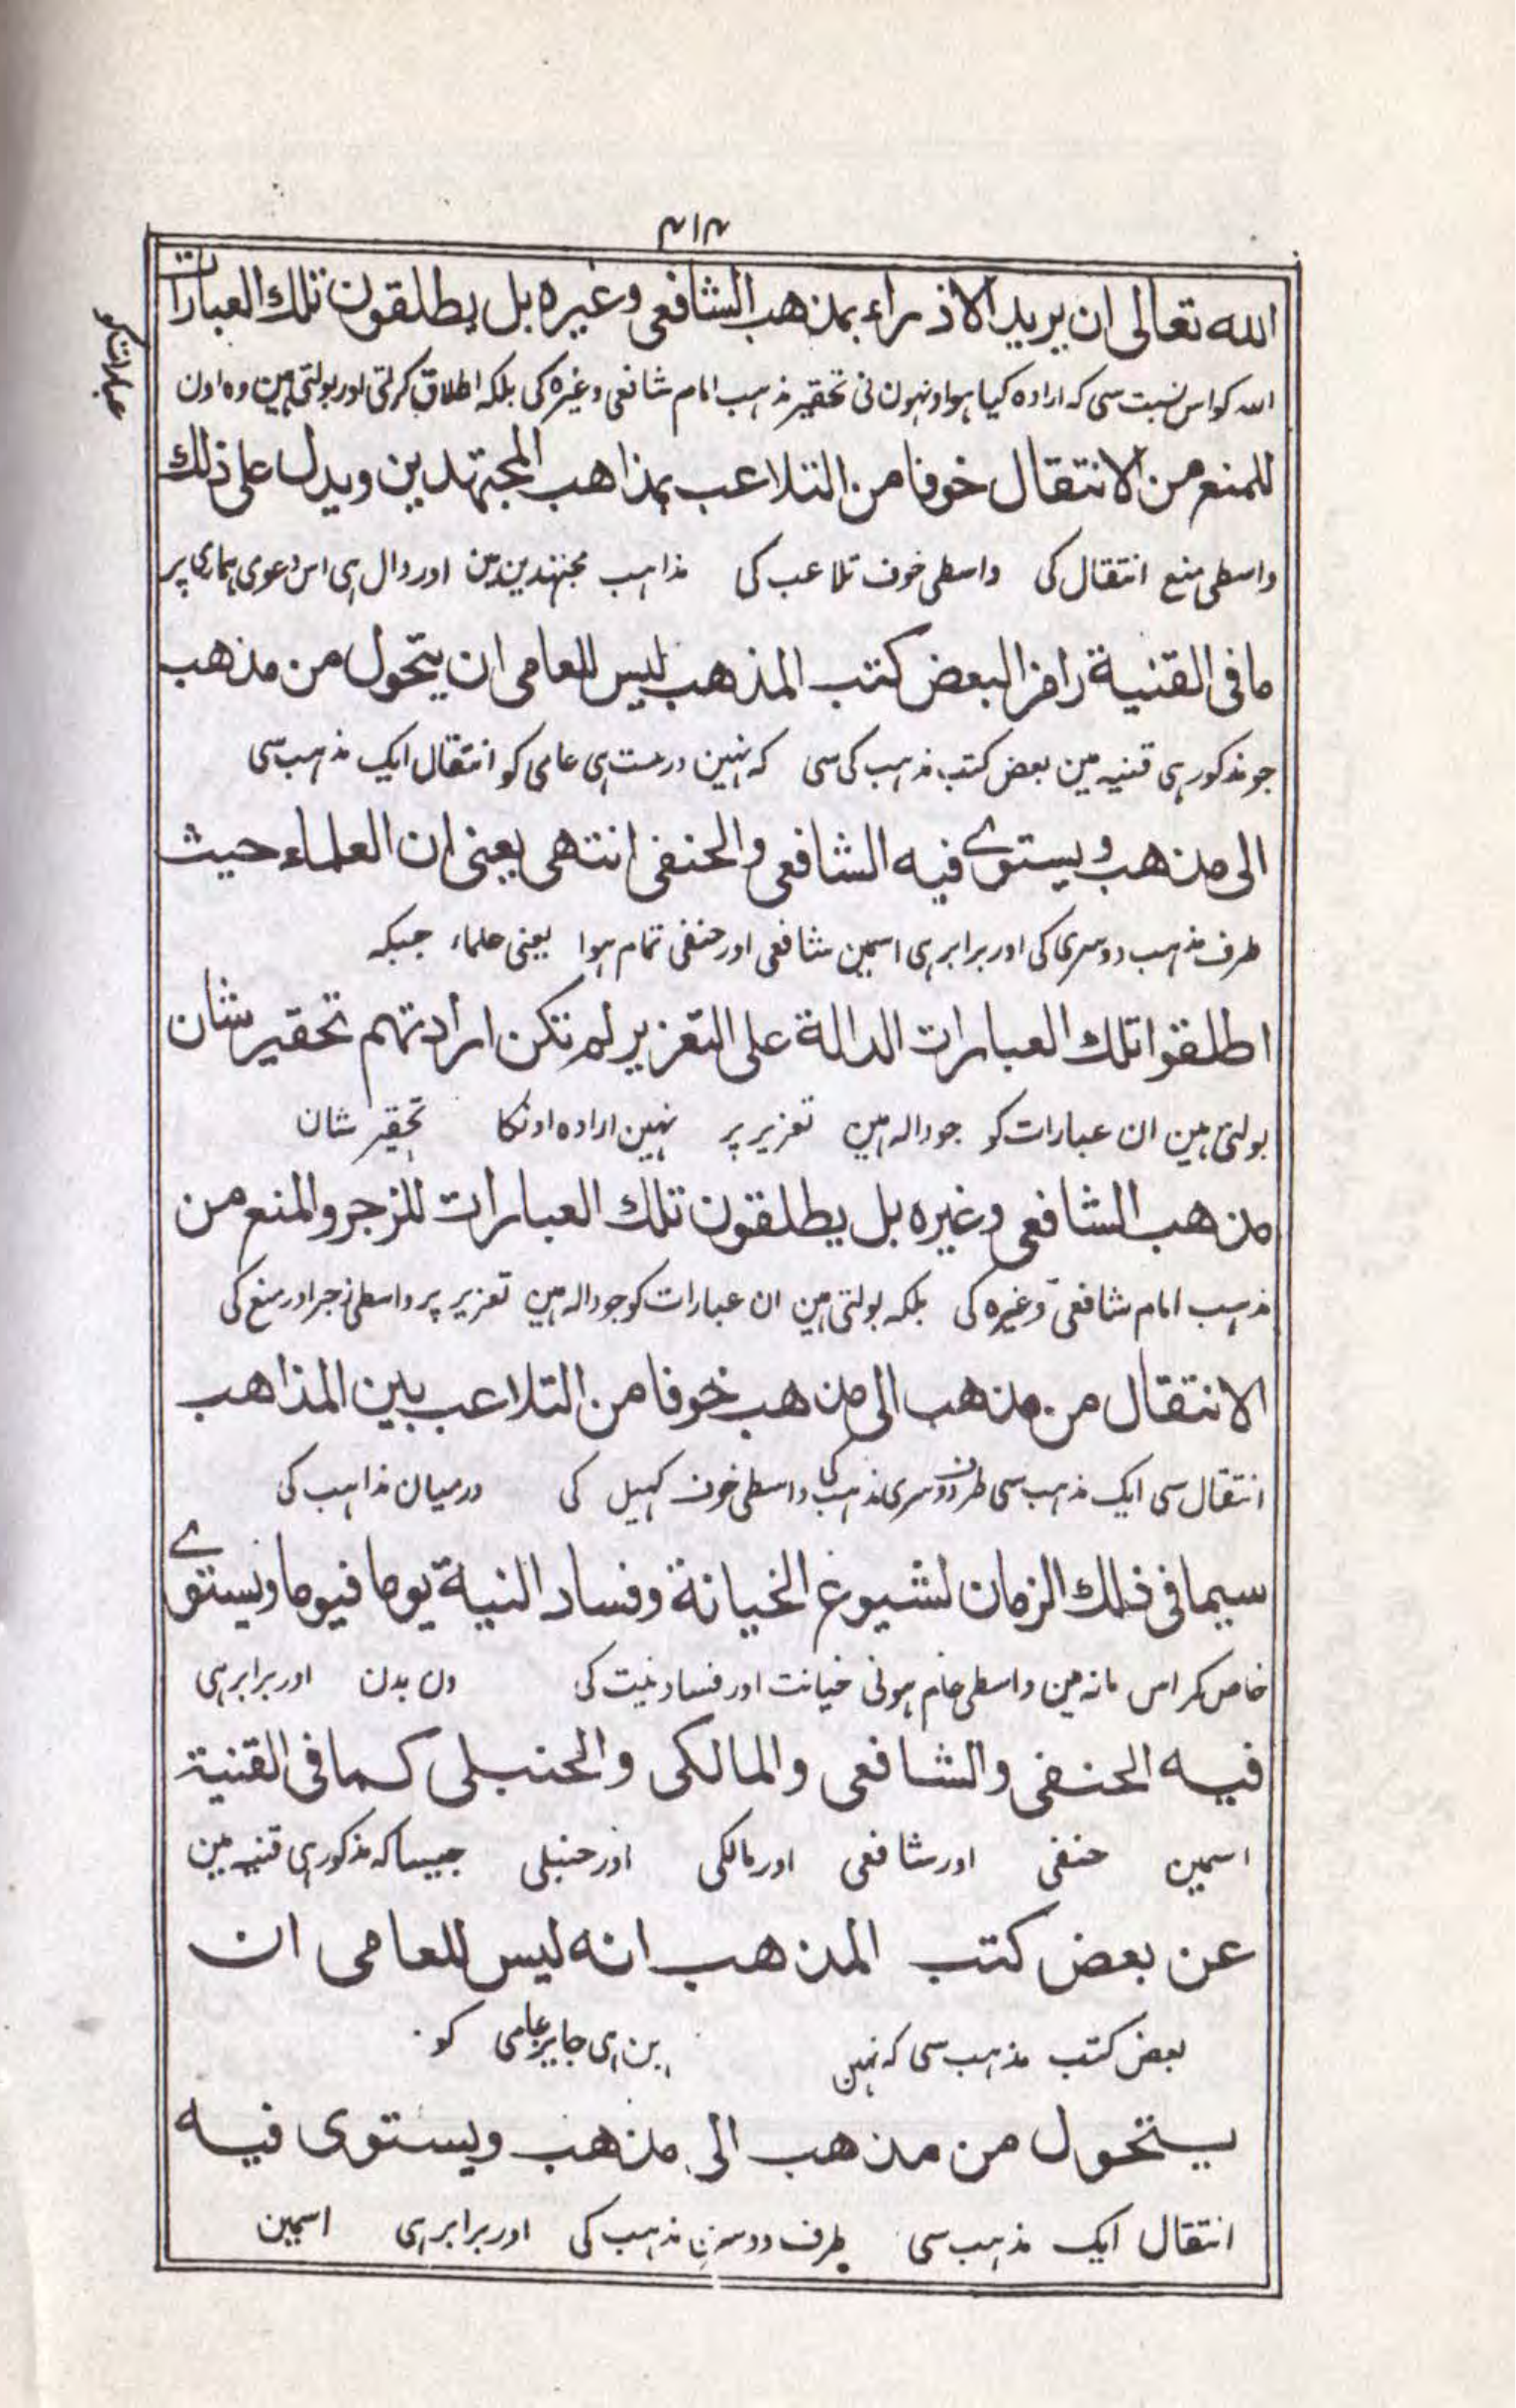 ۴۱۴
الله تعالى ان يريد الاذراء بمذهب الشافعى وغيره بل يطلقون تلك العبارات
اللہ کو اس نسبت سی کہ ارادہ کیا ہو اونہون نی تحقیر مذہب امام شافعی وغیرہ کی بلکہ اطلاق کرلتی اور بولتی ہین وہ اون
عبارات کو
للمنع من الانتقال خوفا من التلاعب بمذاهب المجتهدين ويدل على ذلك
واسطی منع انتقال کی واسطی خوف تلاعب کی مذاہب مجتہدین مین اور دال ہی اس دعوی ہماری پر
ما فى القنية رافزا لبعض كتب المذهب ليس للعامى ان يتحول من مذهب
جو مذکور ہی قنیہ مین بعض کتب مذہب کی سی کہ نہین درست ہی عامی کو انتقال ایک مذہب سی
الى مذهب ويستوے فيه الشافعى والحنفى انتهى يعنى ان العلماء حيث
طرف مذہب دوسری کی اور برابر ہی اسمین شافعی اور حنفی تمام ہوا یعنی علماء جبکہ
اطلقوا تلك العبارات الدالة على التعزير لم تكن ارادتهم تحقير شان
بولتی ہین ان عبارات کو جو دالہ ہین تعزیر پر نہین ارادہ اونکا تحقیر شان
مذهب الشافعى وغيره بل يطلقون تلك العبارات للزجر والمنع من
مذہب امام شافعی وغیرہ کی بلکہ بولتی ہین ان عبارات کو جو دالہ ہین تعزیر پر واسطی زجر اور منع کی
الانتقال من مذهب الى مذهب خوفا من التلاعب بين المذاهب
انتقال سی ایک مذہب سی طرف دوسری مذہب کی واسطی خوف کہیل کی درمیان مذاہب کی
سيما فى ذلك الزمان لشيوع الخيانة وفساد النية يوما فيوما ويستوے
خاص کر اس مانہ مین واسطی عام ہونی خیانت اور فساد نیت کی دن بدن اور برابر ہی
فيه الحنفى والشافعى والمالكى والحنبلى كما فى القنية
اسمین حنفی اور شافعی اور مالکی اور حنبلی جیسا کہ مذکور ہی قنیہ مین
عن بعض كتب المذهب انه ليس للعامى ان
بعض کتب مذہب سی کہ نہین ہی جایز عامی کو
يتحول من مذهب الى مذهب ويستوى فيه
انتقال ایک مذہب سی طرف دوسری مذہب کی اور برابر ہی اسمین